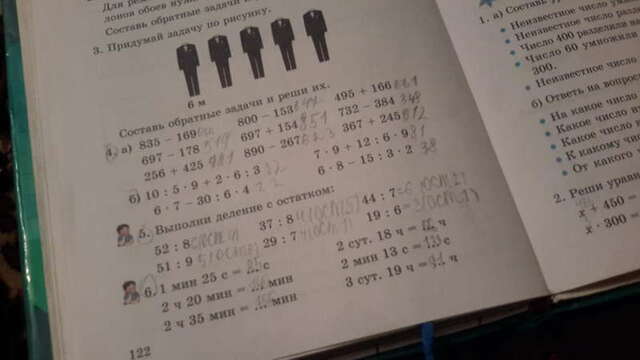 Для ре
лонов обоев нуж
Составь обратные задачи и
3. Придумай задачу по рисунку.
6 м
Составь обратные задачи и реши их.
4. а) 835 − 169 800 − 153 495 + 166 661
697 − 178 519 697 + 154 851 732 − 384 348
256 + 425 681 890 − 267 623 367 + 245 612
б) 10 : 5 · 9 + 2 · 6 : 3 7 · 9 + 12 : 6 · 9 81
6 · 7 − 30 : 6 · 4 22 6 · 8 − 15 : 3 · 2 38
5. Выполни деление с остатком:
52 : 8 37 : 8 4(ост.5) 44 : 7
51 : 9 29 : 7 19 : 6
6. 1 мин 25 с = ... с 2 сут. 18 ч = ... ч
2 ч 20 мин = ... мин 2 мин 13 с = ... с
2 ч 35 мин = ... мин 3 сут. 19 ч = ... ч
122
1. а) Составь
Неизвестное число ум
Неизвестное число разд
Число 400 разделили
Число 60 умножили
300.
Неизвестное число
б) Ответь на вопро
На какое число
Какое число
Какое число
К какому ч
От какого
2. Реши урав
x + 450 =
x · 300 =